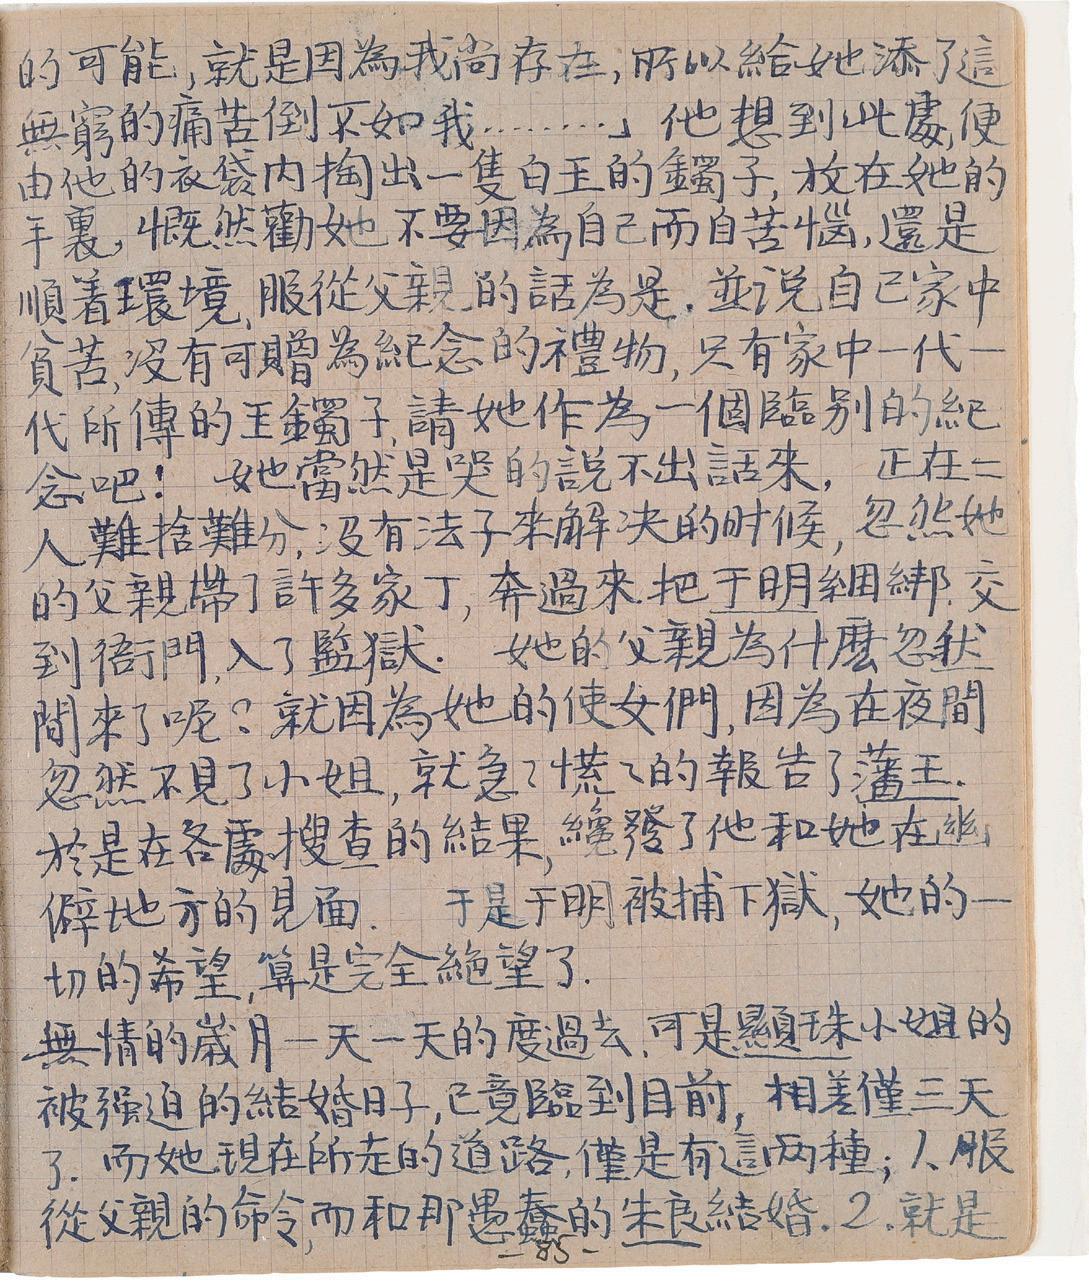 的可能,就是因為我尚存在,所以給她添了這
無窮的痛苦倒不如我………」 他想到此處,便
由他的衣袋内掏出一隻白玉的鐲子,放在她的
手裏,慨然勸她不要因為自己而自苦惱,還是
順着環境,服從父親的話為是.並说自己家中
貧苦,没有可贈為紀念的禮物,只有家中一代一
代所傳的玉鐲子,請她作為一個臨别的紀
念吧! 她當然是哭的説不出話來, 正在二
人難捨難分,没有法子來解决的时候,忽然她
的父親帶了許多家丁,奔過來.把于明綑綁.交
到衙門,入了監獄. 她的父親為什麼忽然
間來了呢?就因為她的使女們,因為在夜間
忽然不見了小姐,就急了慌了的報告了藩王.
於是在各處搜查的結果,纔發了他和她在幽
僻地方的見面. 于是于明被捕下獄,她的一
切的希望,算是完全絶望了.
無情的歲月一天一天的度過去.可是顯珠小姐的
被强迫的結婚日子,已竟臨到目前,相差僅三天
了.而她現在所走的道路,僅是有這两種;1.服
從父親的命令,而和那愚蠢的朱良結婚.2.就是
-85-